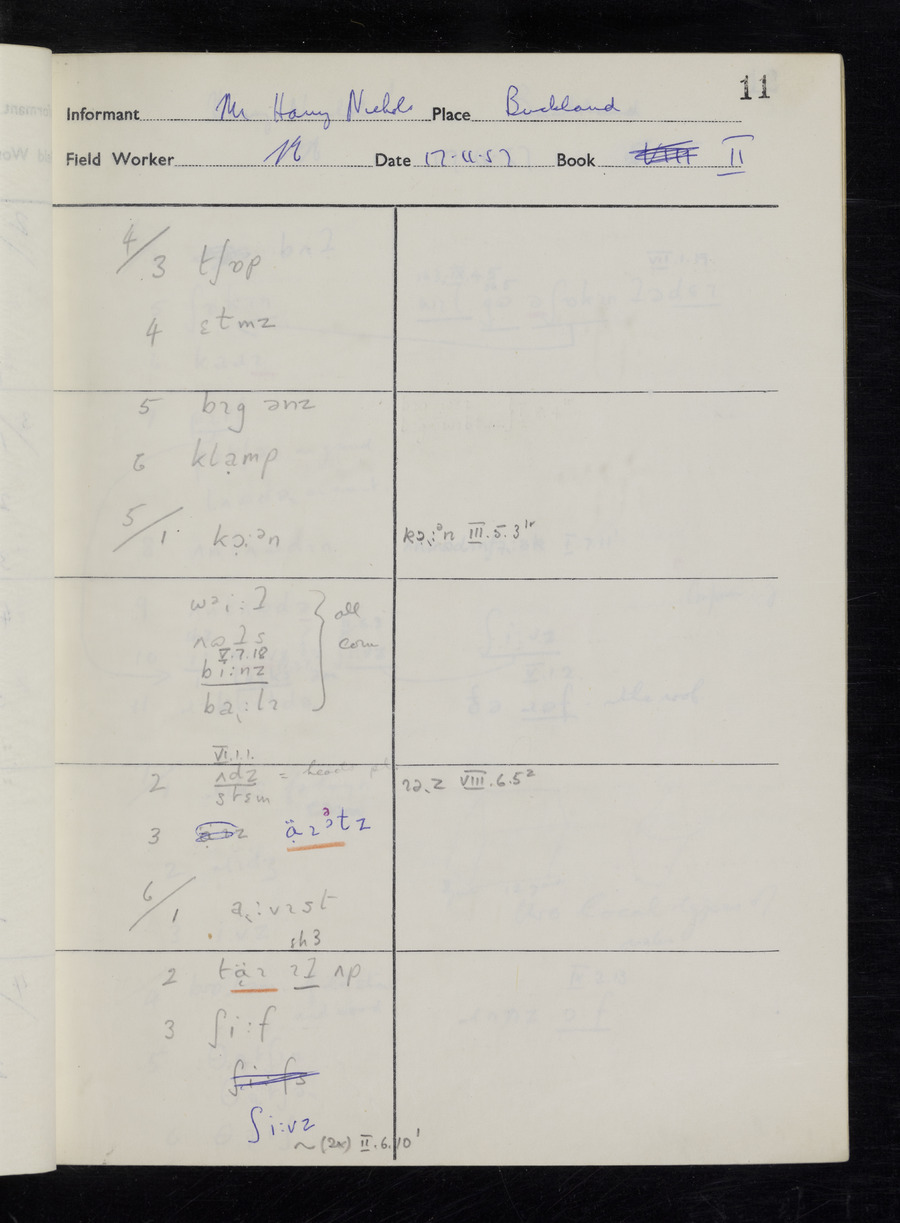 11
Informant Mr Harry Nichols Place Buckland
Field Worker Date 17.11.57 Book II
4/3 tʃɒp
4 ɛtmz
5 bɪg ənz
6 klạmp
5/1. kọ:ᵊn kọ:ᵊn III.5.3
wəi:l
ʌɷls
V.7.18
bi:nz
ba:lɪ
} all corn
VI.1.1.
2 ʌdz = heads
stɛm
ɪəz VIII.6.5²
3 ạ̈ɪᵊtz
6/1 a:vɪst
sh3
2 täɪ ɪl ʌp
3 ʃi:f
ʃi:vz
~(2x) II.6.10¹